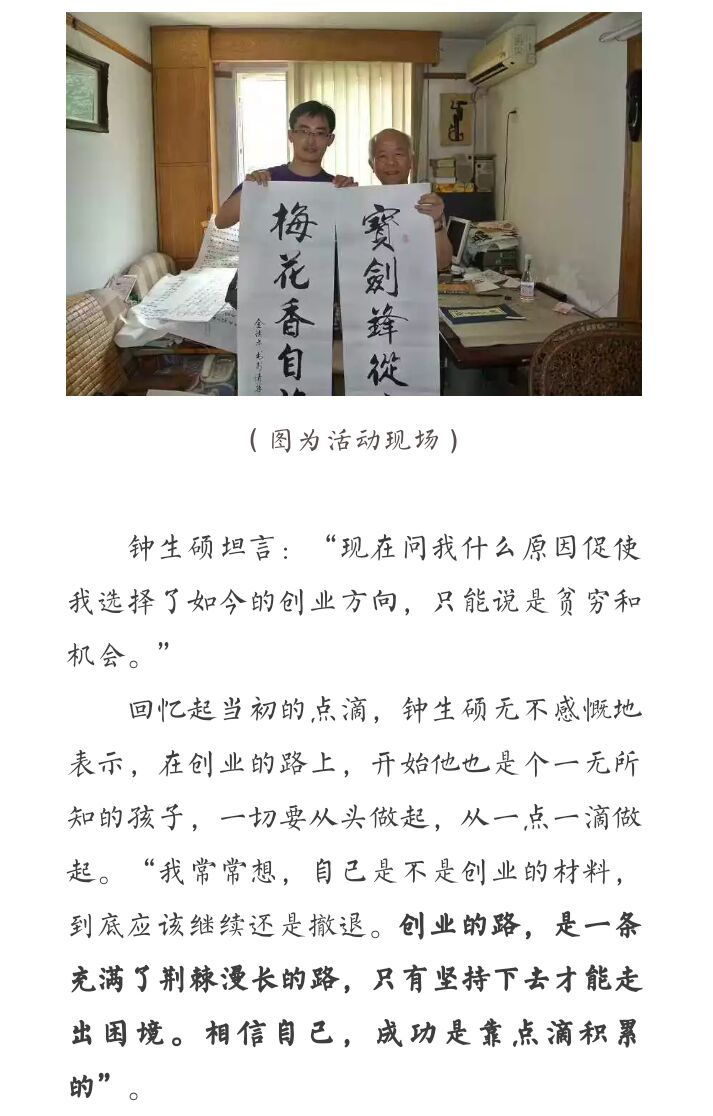 寶劍鋒從
梅花香自
(图为活动现场)
钟生硕坦言：“现在问我什么原因促使
我选择了如今的创业方向，只能说是贫穷和
机会。”
回忆起当初的点滴，钟生硕无不感慨地
表示，在创业的路上，开始他也是个一无所
知的孩子，一切要从头做起，从一点一滴做
起。“我常常想，自己是不是创业的材料，
到底应该继续还是撤退。创业的路，是一条
充满了荆棘漫长的路，只有坚持下去才能走
出困境。相信自己，成功是靠点滴积累
的”。